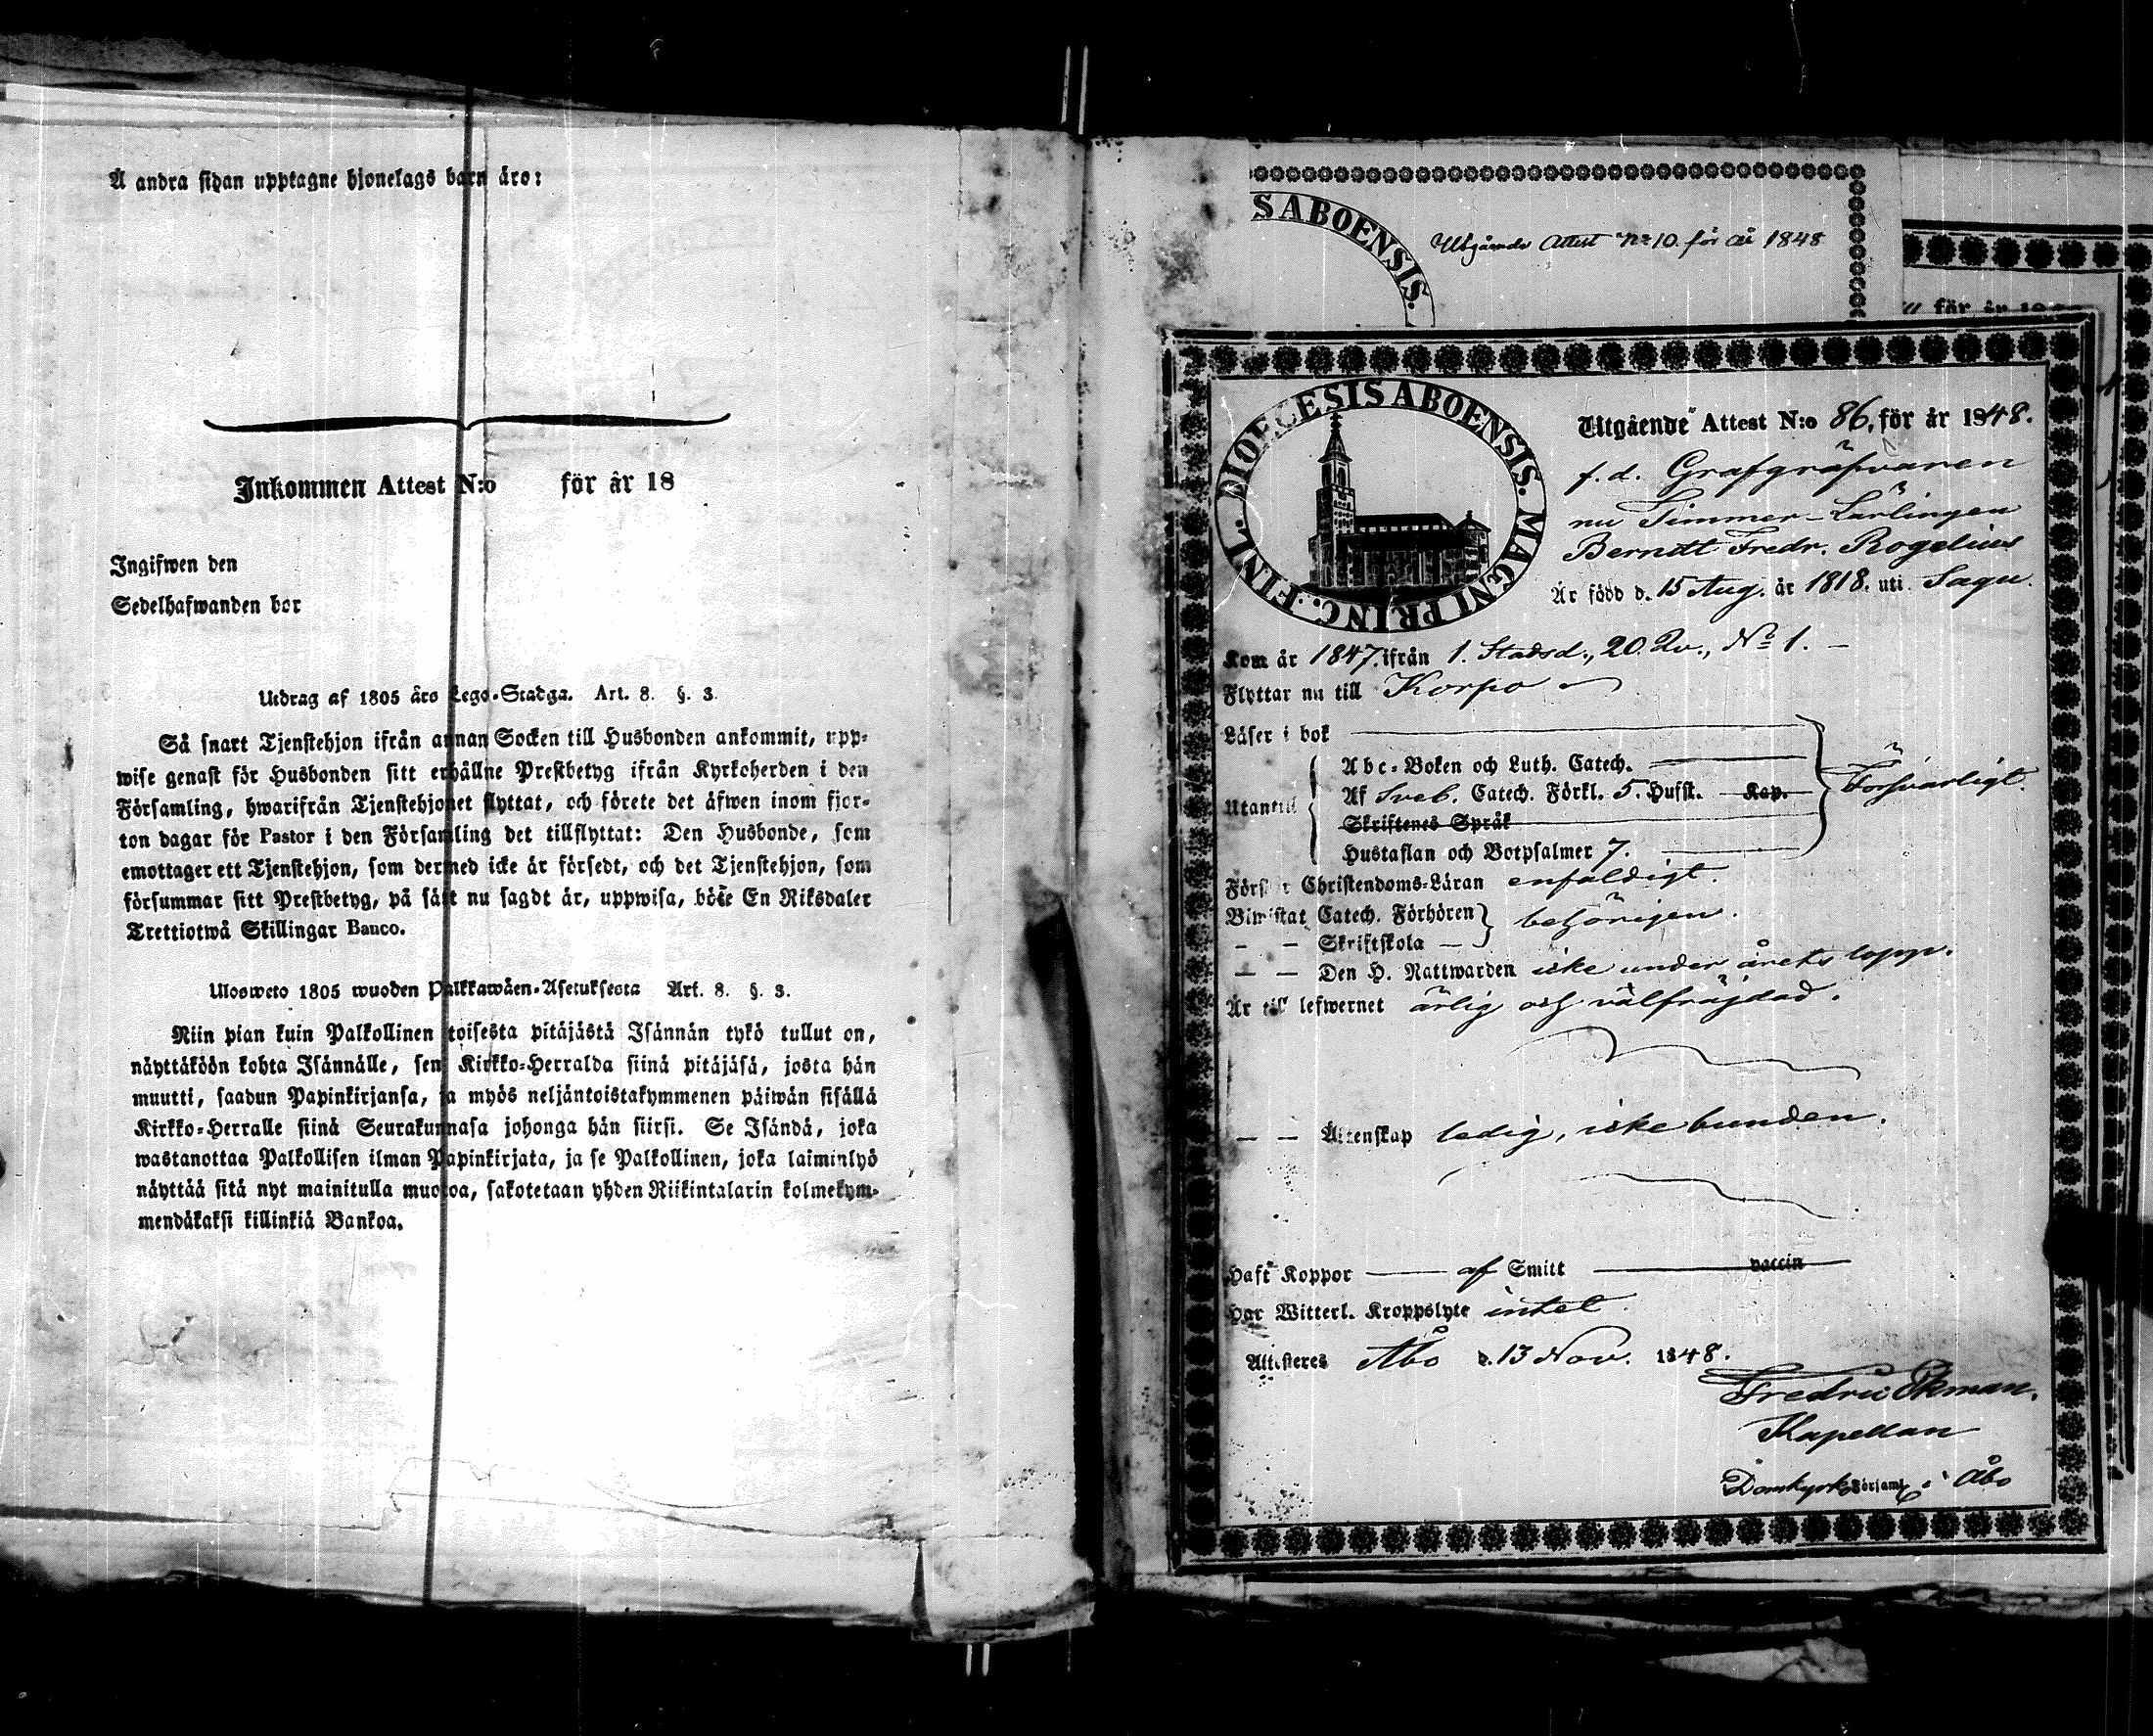 Å andra sidan upptagne hjonelags barn äro:
Inkommen Attest N:o för år 18
Ingifwen den
Sedelhafwanden bor
Utdrag af 1805 års Lego-Stadga. Art. 8. §. 3.
Så snart Tjenstehjon ifrån annan Socken till Husbonden ankommit, upp-
wise genast för Husbonden sitt erhållne Prestbetyg ifrån Kyrkoherden i den
Församling, hwarifrån Tjenstehjonet flyttat, och förete det äfwen inom fjor-
ton dagar för Pastor i den Församling det tillflyttat: Den Husbonde, som
emottager ett Tjenstehjon, som dermed icke är försedt, och det Tjenstehjon, som
försummar sitt Prestbetyg, på sätt nu sagdt är, uppwisa, böte En Riksdaler
Trettiotwå Skillingar Banco.
Ulosweto 1805 wuoden Palkkawäen-Asetuksesta Art. 8. §. 3.
Niin pian kuin Palkollinen toisesta pitäjästä Isännän tykö tullut on,
näyttäköön kohta Isännälle, sen Kirkko-Herralda siinä pitäjäsä, josta hän
muutti, saadun Papinkirjansa, ja myös neljäntoistakymmenen päiwän sisällä
Kirkko-Herralle siinä Seurakunnasa johonga hän siirsi. Se Isändä, joka
wastanottaa Palkollisen ilman Papinkirjata, ja se Palkollinen, joka laiminlyö
näyttää sitä nyt mainitulla muotoa, sakotetaan yhden Riikintalarin kolmekym-
mendäkaksi killinkiä Bankoa.
S ABOENSIS.
Utgående Attest No 10. för år 1848
för år
DIOECESIS ABOENSIS. MAGNI PRINC. FINL.
Utgående Attest N:o 86, för år 1848.
f. d. Grafgräfvaren
nu Timmer-Lärlingen
Berndt Fredr. Rogelius
Är född d. 15 Aug. år 1818. uti Sagu.
Kom år 1847. ifrån 1. Stadsd., 20. Qv., No 1. —
Flyttar nu till Korpo
Läser i bok
Abc-Boken och Luth. Catech.
Utantill Af Sveb. Catech. Förkl. 5. Hufst. Kap. Försvarligt.
Skriftenes Språk
Hustaflan och Botpsalmer 7.
Förstår Christendoms-Läran enfaldigt.
Biwistat Catech. Förhören behörigen.
— — Skriftskola —
— — Den H. Nattwarden icke under årets lopp.
Är till lefwernet ärlig och välfräjdad.
— — Äktenskap ledig, icke bunden.
Haft Koppor — af Smitt — vaccin
Har Witterl. Kroppslyte intet.
Attesteres Åbo d. 13 Nov. 1848.
Fredric Ekman.
Kapellan
Domkyrko Församl i Åbo